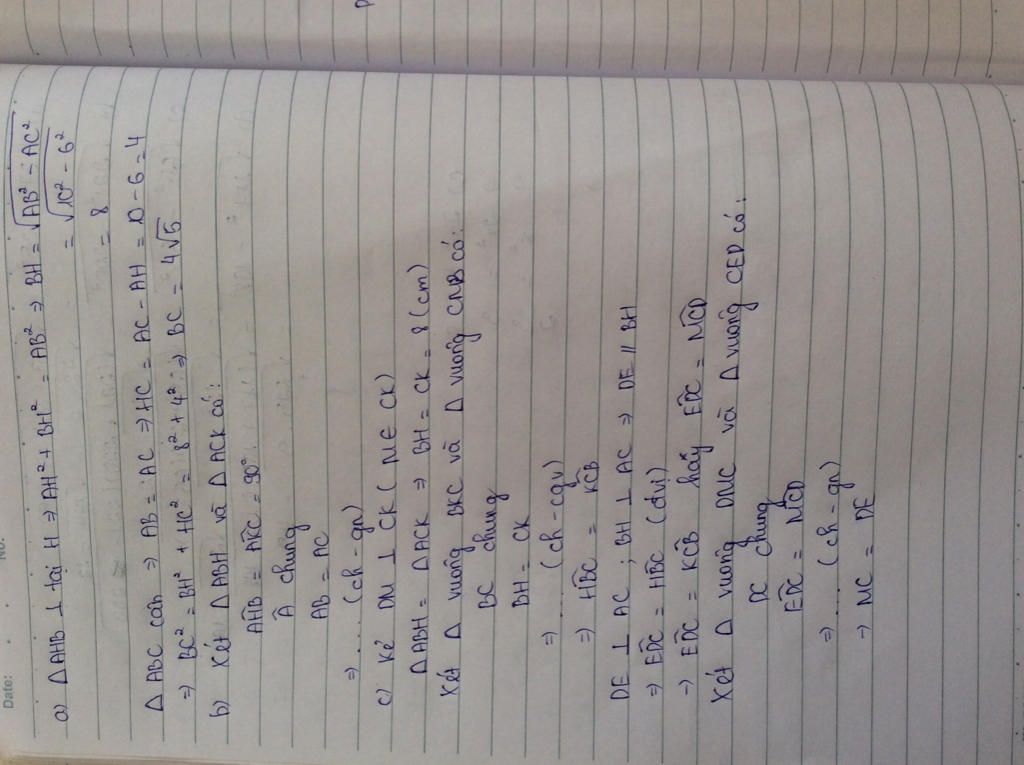 Date:
No.
a) △AHB ⊥ tại H ⇒ AH² + BH² = AB² ⇒ BH = √AB² - AC²
= √10² - 6²
= 8
△ABC cân ⇒ AB = AC ⇒ HC = AC - AH = 10 - 6 = 4
⇒ BC² = BH² + HC² = 8² + 4² ⇒ BC = 4√5
b) Xét △ABH và △ACK có:
AHB = AKC = 90°
Â chung
AB = AC
⇒ .... (ch - gn)
c) Kẻ DM ⊥ CK (M ∈ CK)
△ABH = △ACK ⇒ BH = CK = 8 (cm)
Xét △ vuông BKC và △ vuông có:
BC chung
BH = CK
⇒ .... (ch - cgv)
⇒ HBC = KCB
DE ⊥ AC ; BH ⊥ AC ⇒ DE // BH
⇒ EDC = HBC (đvị)
→ EDC = KCB hay EDC = MCD
Xét △ vuông DMC và △ vuông CED có:
DC chung
EDC = MCD
⇒ .... (ch - gn)
→ MC = DE